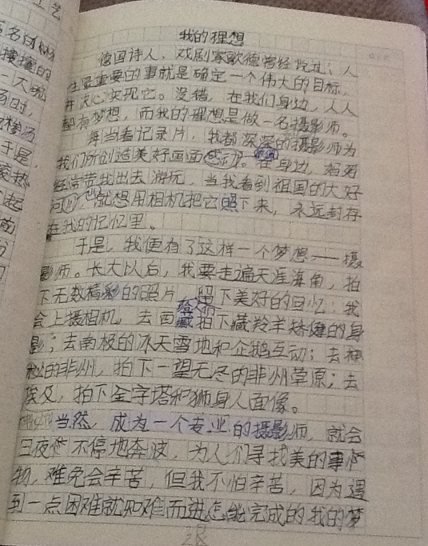 我的理想
德国诗人、戏剧家歌德曾经说过：人
生最重要的事就是确定一个伟大的目标，
并决心实现它。没错，在我们身边，人人
都有梦想，而我的理想是做一名摄影师。
每当看记录片，我都深深的摄影师为
我们所创造美好画面感动。在身边，爸妈
经常带我出去游玩，当我看到祖国的大好
就想用相机把它照下来，永远封存
在我的记忆里。
于是，我便有了这样一个梦想——摄
影师。长大以后，我要走遍天涯海角，拍
下无数精彩的照片，留下美好的回忆：我
会上摄相机，去西藏拍下藏羚羊矫健的身
影；去南极的冰天雪地和企鹅互动；去神
秘的非洲，拍下一望无尽的非洲草原；去
埃及，拍下金字塔和狮身人面像。
当然，成为一个专业的摄影师，就会
日夜 不停地奔波，为人们寻找美的事
物，难免会辛苦，但我不怕辛苦，因为遇
到一点困难就知难而进怎能完成的我的梦